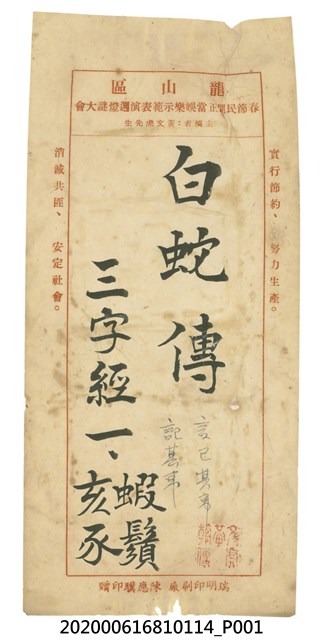 龍山區
春節民間正當娛樂示範表演週燈謎大會
主稿者：黃文虎先生
實行節約、努力生產。
白蛇傳
三字經一、
蝦鬚
亥豕
言已其事
記其事
消滅共匪、安定社會。
瑞明印刷廠 陳應驥印贈
202000616810114_P001